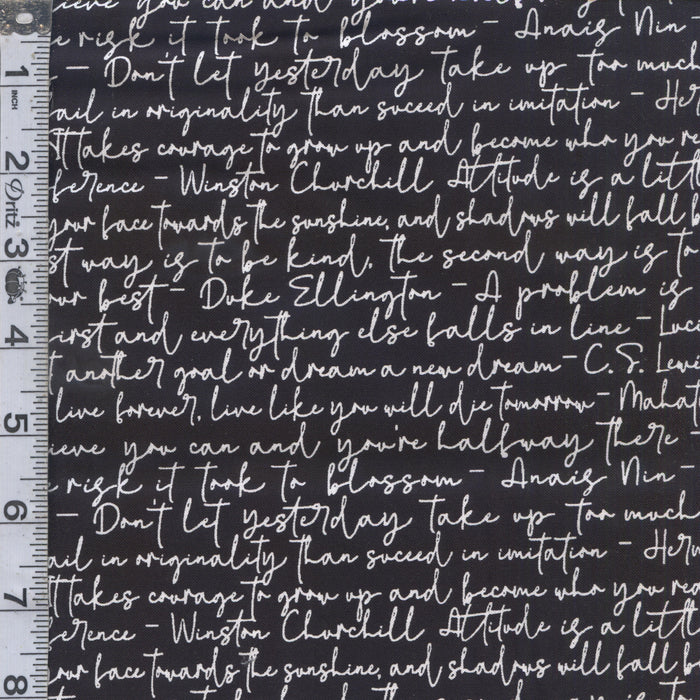 ieve you can and you're halfway there -
e risk it took to blossom - Anais Nin
- Don't let yesterday take up too much
ail in originality than suceed in imitation - Her
It takes courage to grow up and become who you re
ference - Winston Churchill Attitude is a littl
your face towards the sunshine, and shadows will fall
st way is to be kind, the second way is to
ur best - Duke Ellington - A problem is
irst and everything else falls in line - Luc
t another goal or dream a new dream - C.S. Lewi
live forever, live like you will die tomorrow - Mahat
ieve you can and you're halfway there -
e risk it took to blossom - Anais Nin -
- Don't let yesterday take up too much
ail in originality than suceed in imitation - Her
It takes courage to grow up and become who you re
ference - Winston Churchill Attitude is a littl
our face towards the sunshine, and shadows will fall b
1 INCH
2
Dritz
3
4
5
6
7
8